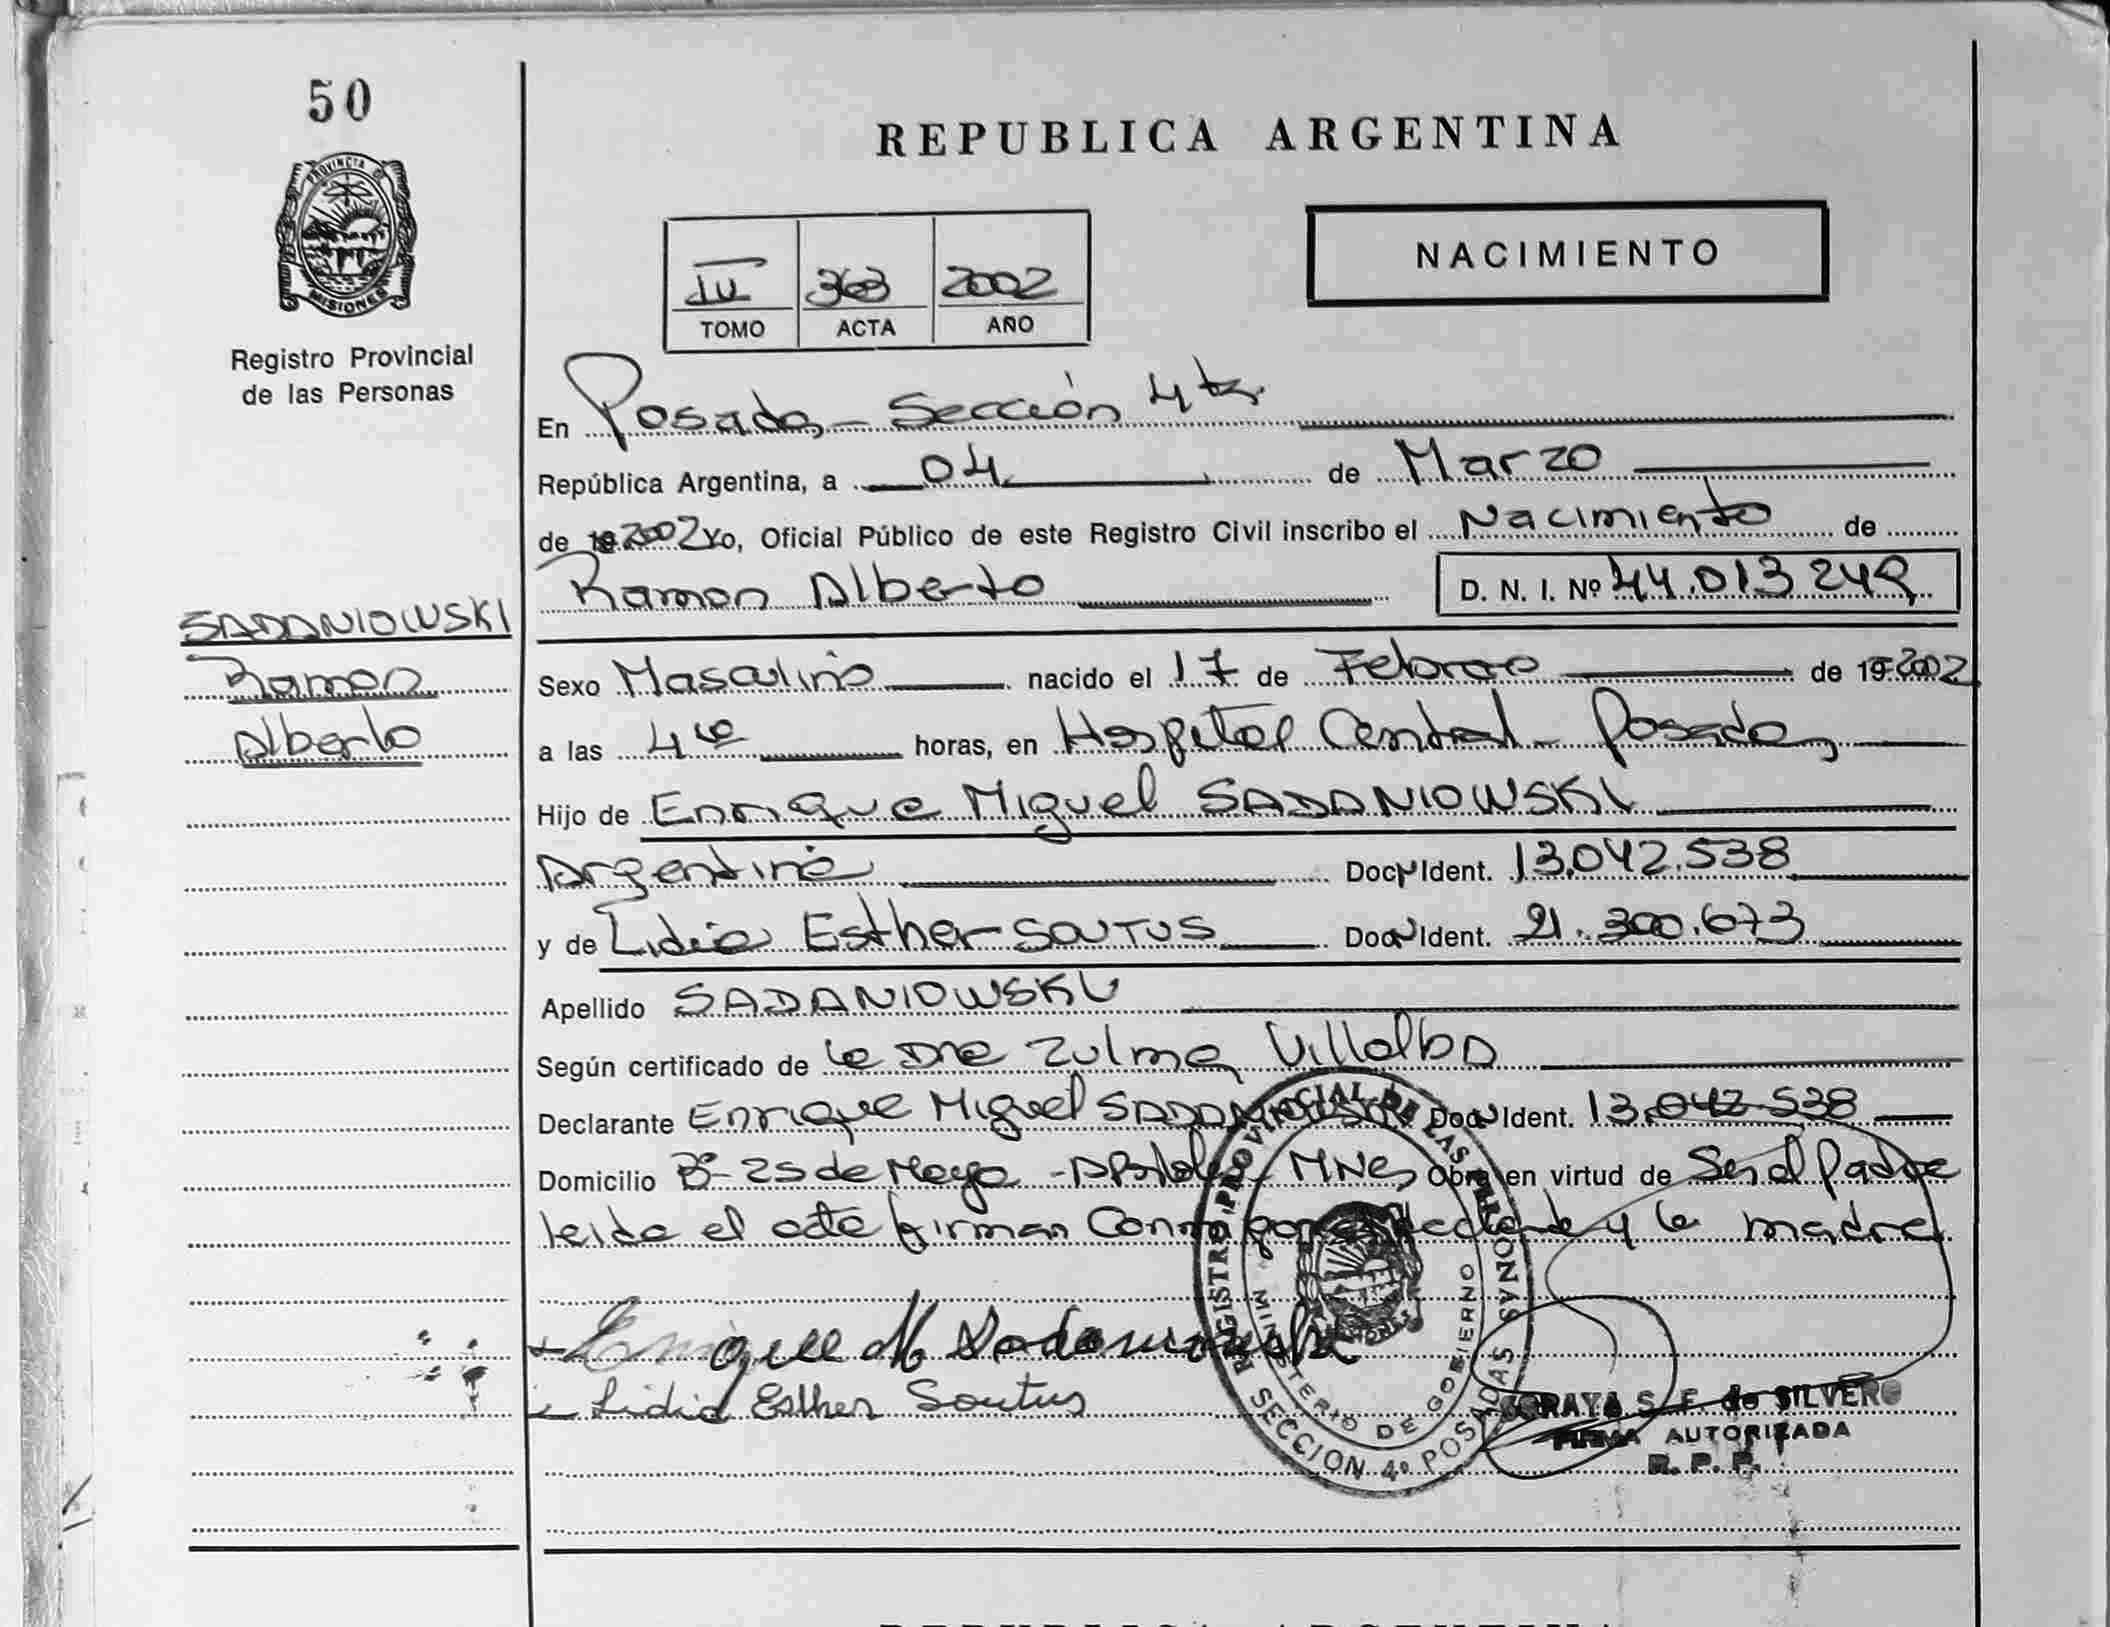 50
REPUBLICA ARGENTINA
PROVINCIA DE
MISIONES
Registro Provincial
de las Personas
NACIMIENTO
363 2002
TOMO ACTA AÑO
En Posadas - Sección 4ta.
República Argentina, a 04 de Marzo
de 19 2002 Yo, Oficial Público de este Registro Civil inscribo el Nacimiento de
Ramon Alberto D. N. I. Nº 44.013.249
SADANIOWSKI
Ramon
Alberto
Sexo Masculino nacido el 17 de Febrero de 19 2002
a las 4 horas, en Hospital Central - Posadas
Hijo de Enrique Miguel SADANIOWSKI
Argentino Doc. Ident. 13.042.538
y de Lidia Esther SOUTUS Doc. Ident. 21.300.673
Apellido SADANIOWSKI
Según certificado de la Dra Zulma Villalba
Declarante Enrique Miguel SADANIOWSKI Doc. Ident. 13.042.538
Domicilio Bº 25 de Mayo - Apostoles Mnes Obra en virtud de Ser el Padre
leida el acta firman Conmigo el declarante y la madre
Enrique M Sadaniowski
Lidia Esther Soutus
REGISTRO PROVINCIAL DE LAS PERSONAS
MINISTERIO DE GOBIERNO
SECCION 4º POSADAS
SORAYA S. F. de SILVERO
FIRMA AUTORIZADA
R. P. P.
REPUBLICA ARGENTINA